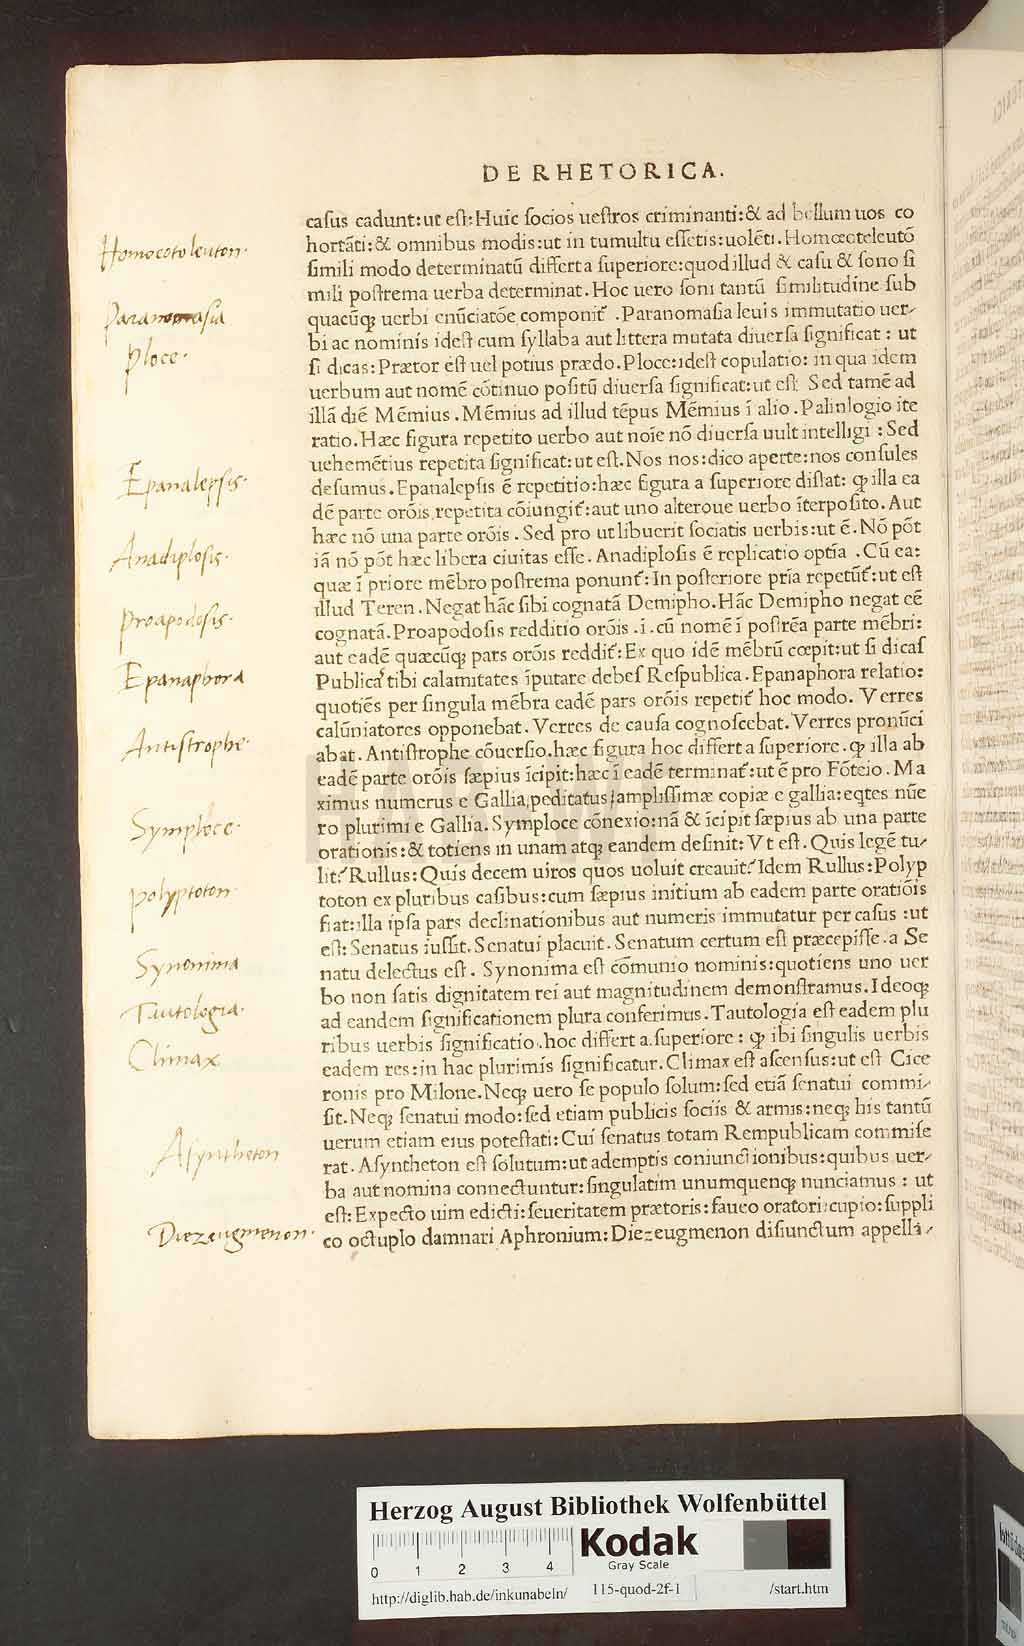 DE RHETORICA.
casus cadunt:ut est:Huic socios uestros criminanti:& ad bellum uos co
Homoeotoleuton.
hortãti:& omnibus modis:ut in tumultu essetis:uolẽti.Homœoteleutõ
simili modo determinatũ differt a superiore:quod illud & casu & sono si
mili postrema uerba determinat.Hoc uero soni tantũ similitudine sub
Paranomasia
quacũq; uerbi enũciatõe componit̃ .Paranomasia leuis immutatio uer-
bi ac nominis idest cum syllaba aut littera mutata diuersa significat : ut
Ploce.
si dicas:Prætor est uel potius prædo.Ploce:idest copulatio: in qua idem
uerbum aut nomẽ cõtinuo positũ diuersa significat:ut est: Sed tamẽ ad
illã diẽ Mẽmius .Mẽmius ad illud tẽpus Mẽmius ĩ alio .Palinlogio ite
ratio.Hæc figura repetito uerbo aut noĩe nõ diuersa uult intelligi : Sed
uehemẽtius repetita significat:ut est.Nos nos:dico aperte:nos consules
Epanalepsis.
desumus.Epanalepsis ẽ repetitio:hæc figura a superiore distat: ꝙ illa ea
dẽ parte orõis repetita cõiungit̃:aut uno alteroue uerbo ĩterposito.Aut
hæc nõ una parte orõis . Sed pro ut libuerit sociatis uerbis:ut ẽ.Nõ põt
Anadiplosis.
iã nõ põt hæc libera ciuitas esse. Anadiplosis ẽ replicatio optĩa .Cũ ea:
quæ ĩ priore mẽbro postrema ponunt̃:In posteriore prĩa repetũt̃:ut est
illud Teren.Negat hãc sibi cognatã Demipho.Hãc Demipho negat eẽ
Proapodosis.
cognatã.Proapodosis redditio orõis .i.cũ nomẽ ĩ postrẽa parte mẽbri:
aut eadẽ quæcũq; pars orõis reddit̃: Ex quo idẽ mẽbrũ cœpit:ut si dicas
Epanaphora
Publicas tibi calamitates ĩputare debes Respublica.Epanaphora relatio:
quotiẽs per singula mẽbra eadẽ pars orõis repetit̃ hoc modo. Verres
calũniatores opponebat.Verres de causa cognoscebat.Verres pronũci
Antistrophe.
abat.Antistrophe cõuersio.hæc figura hoc differt a superiore.ꝙ illa ab
eadẽ parte orõis sæpius ĩcipit:hæc ĩ eadẽ terminat̃:ut ẽ pro Fõteio.Ma
ximus numerus e Gallia peditatus:amplissimæ copiæ e gallia:eqtes nũe
Symploce.
ro plurimi e Gallia.Symploce cõnexio:nã & ĩcipit sæpius ab una parte
orationis:& totiens in unam atq; eandem definit: Vt est. Quis legẽ tu-
lit?Rullus:Quis decem uiros quos uoluit creauit?Idem Rullus:Polyp
Polyptoton.
toton ex pluribus casibus:cum sæpius initium ab eadem parte oratiõis
fiat:illa ipsa pars declinationibus aut numeris immutatur per casus :ut
est: Senatus iussit.Senatui placuit.Senatum certum est præcepisse.a Se
Synonima
natu delectus est. Synonima est cõmunio nominis:quotiens uno uer
bo non satis dignitatem rei aut magnitudinem demonstramus.Ideoq;
Tautologia.
ad eandem significationem plura conferimus.Tautologia est eadem plu
ribus uerbis significatio.hoc differt a superiore : ꝙ ibi singulis uerbis
Climax
eadem res:in hac plurimis significatur.Climax est ascensus:ut est Cice
ronis pro Milone.Neq; uero se populo solum:sed etiã senatui commi-
sit.Neq; senatui modo:sed etiam publicis sociis & armis:neq; his tantũ
uerum etiam eius potestati:Cui senatus totam Rempublicam commise
Asyntheton
rat. Asyntheton est solutum:ut ademptis coniunctionibus:quibus uer-
ba aut nomina connectuntur:singulatim unumquenq; nunciamus : ut
est:Expecto uim edicti:seueritatem prætoris:faueo oratori:cupio:suppli
Diezeugmenon.
co octuplo damnari Aphronium:Diezeugmenon disiunctum appella-
Herzog August Bibliothek Wolfenbüttel
0 1 2 3 4
Kodak
Gray Scale
http://diglib.hab.de/inkunabeln/ 115-quod-2f-1 /start.htm